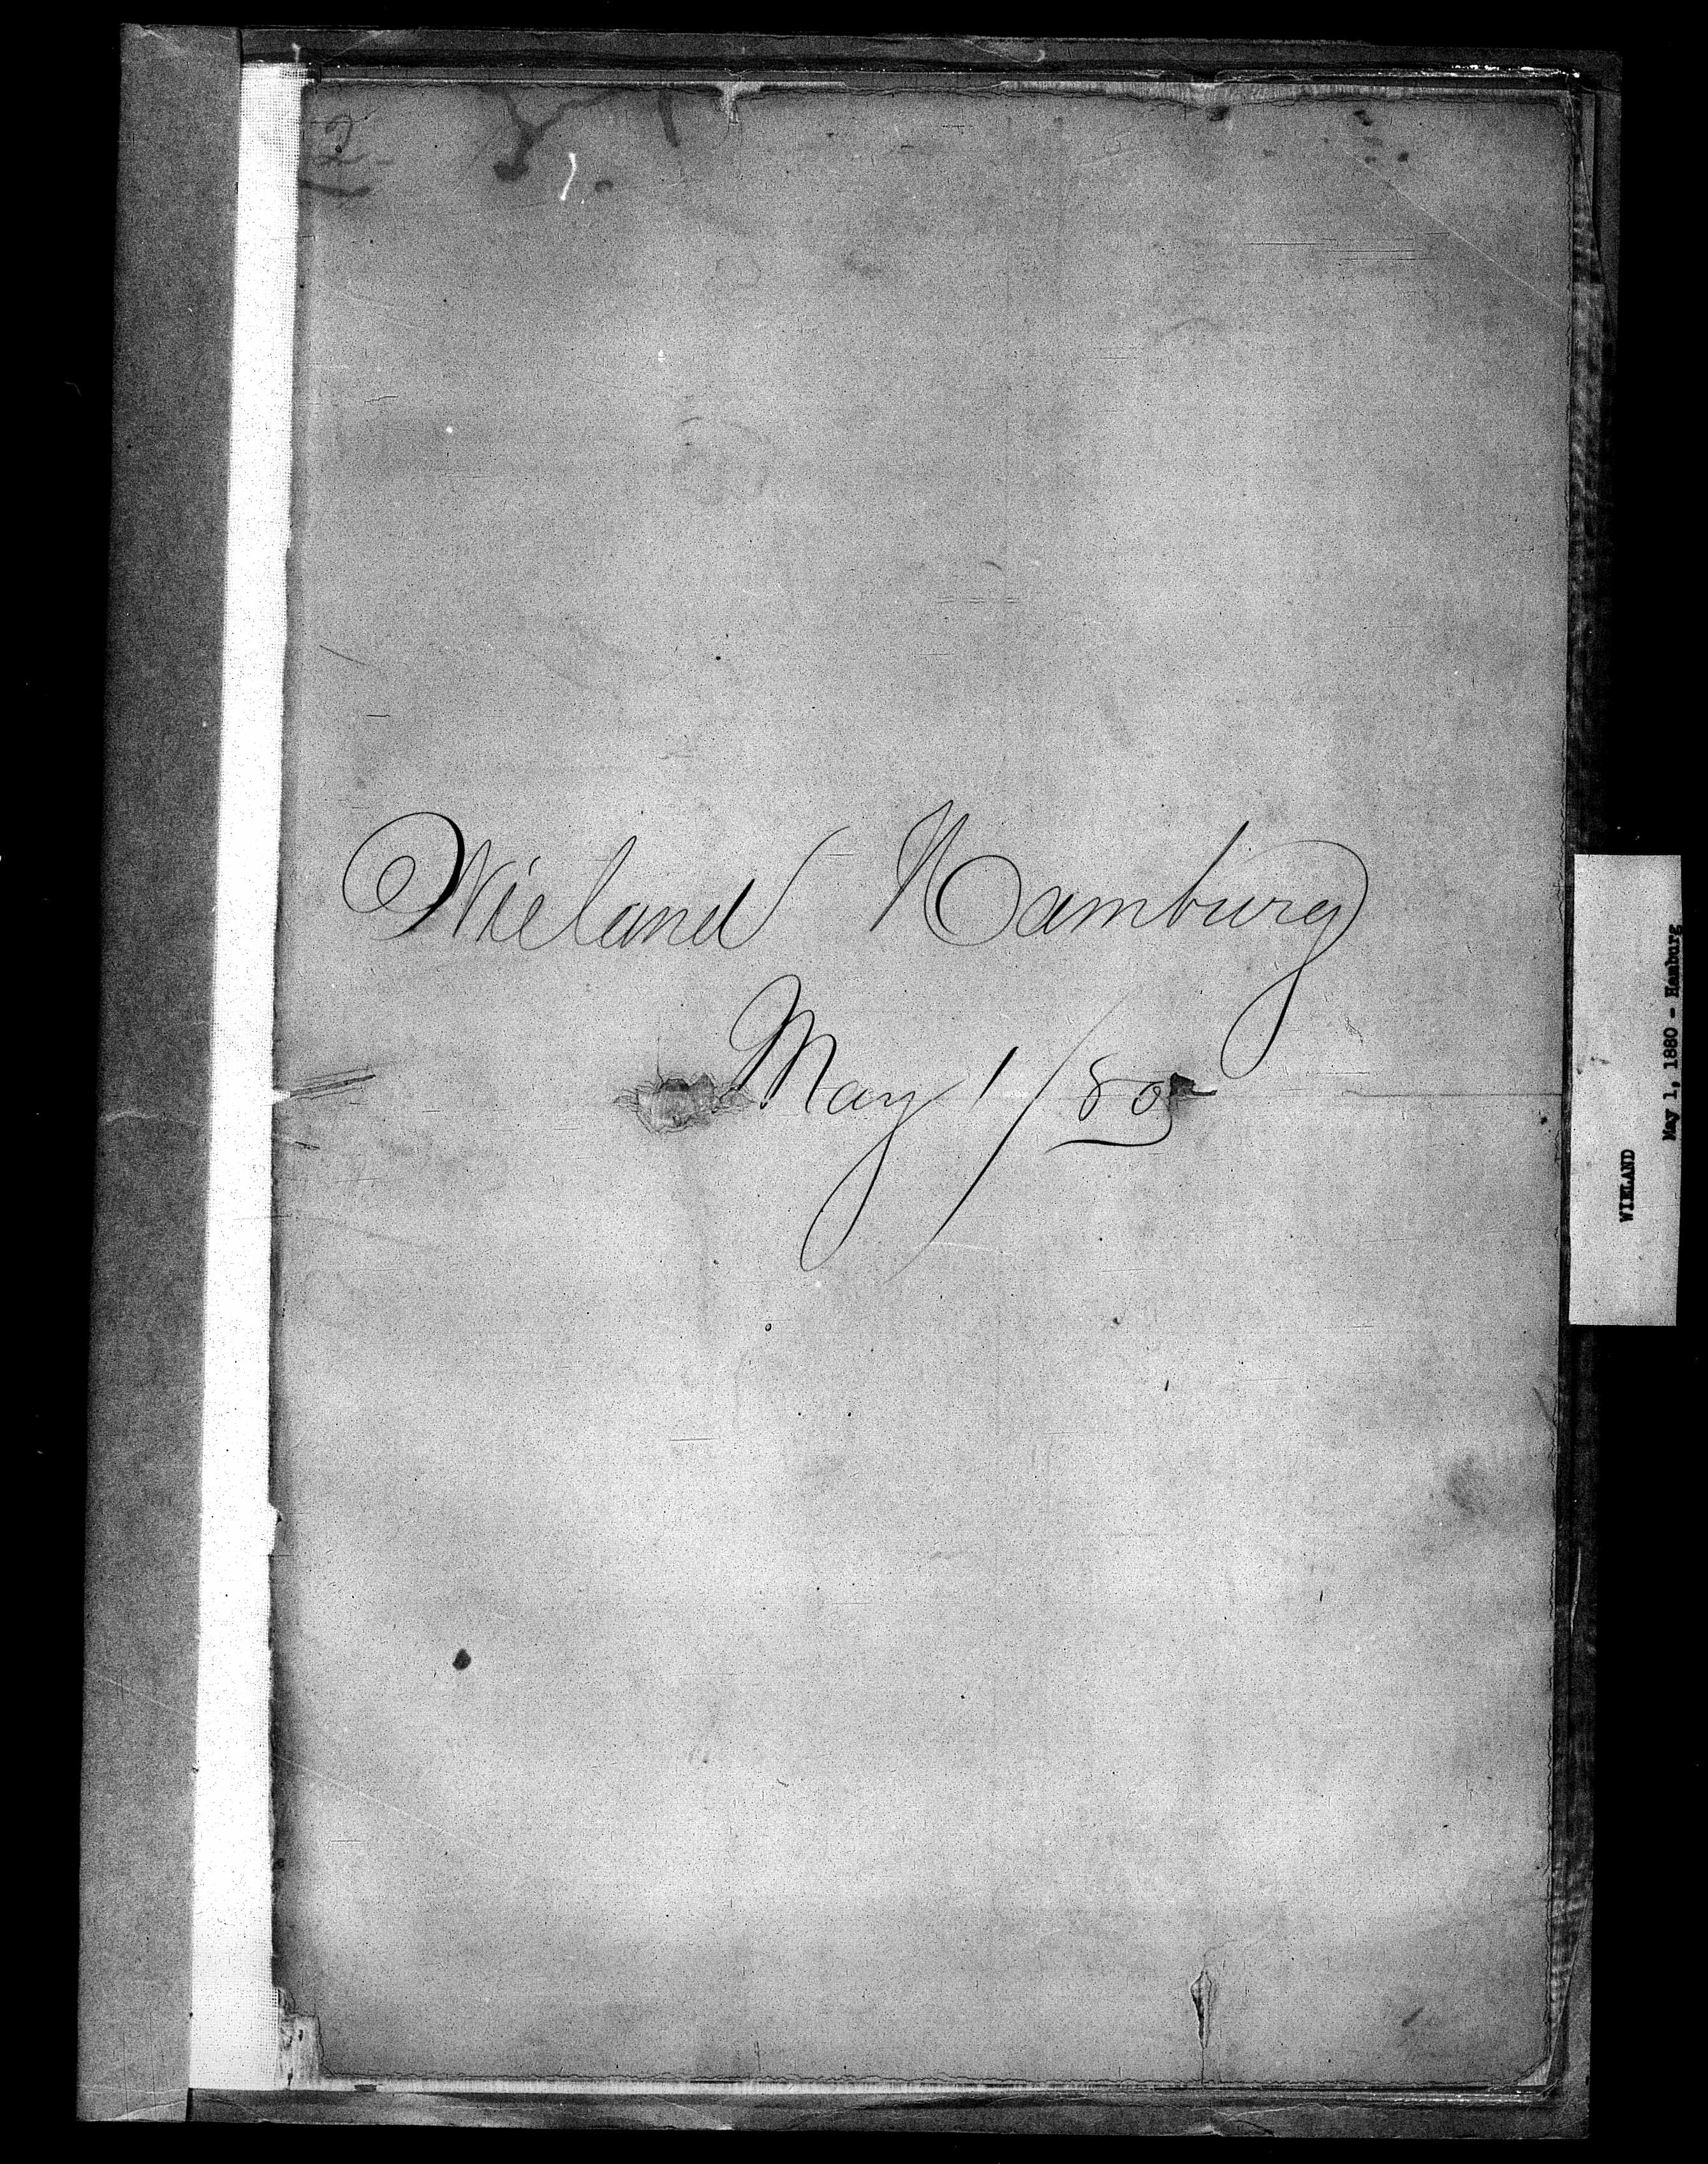 Wieland Hamburg
May 1/80
WIELAND
May 1, 1880 - Hamburg